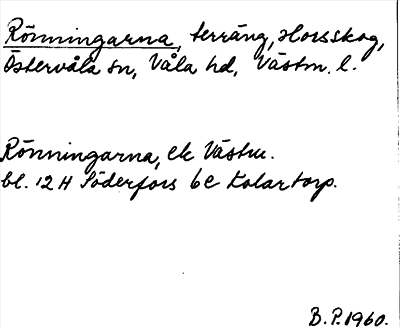 Rönningarna, terräng, Horsskog,
Östervåla sn, Våla hd, Västm. l.
Rönningarna, ek Västm.
bl. 12 H Söderfors 6 e Kolartorp.
B. P. 1960.